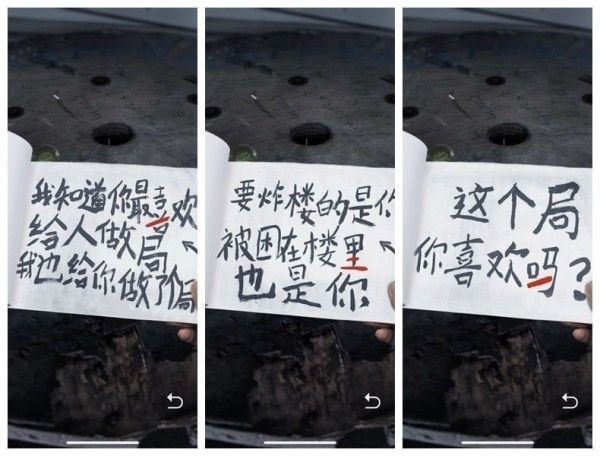 我知道你最喜欢
给人做局
我也给你做了局
要炸楼的是你
被困在楼里
也是你
这个局
你喜欢吗?